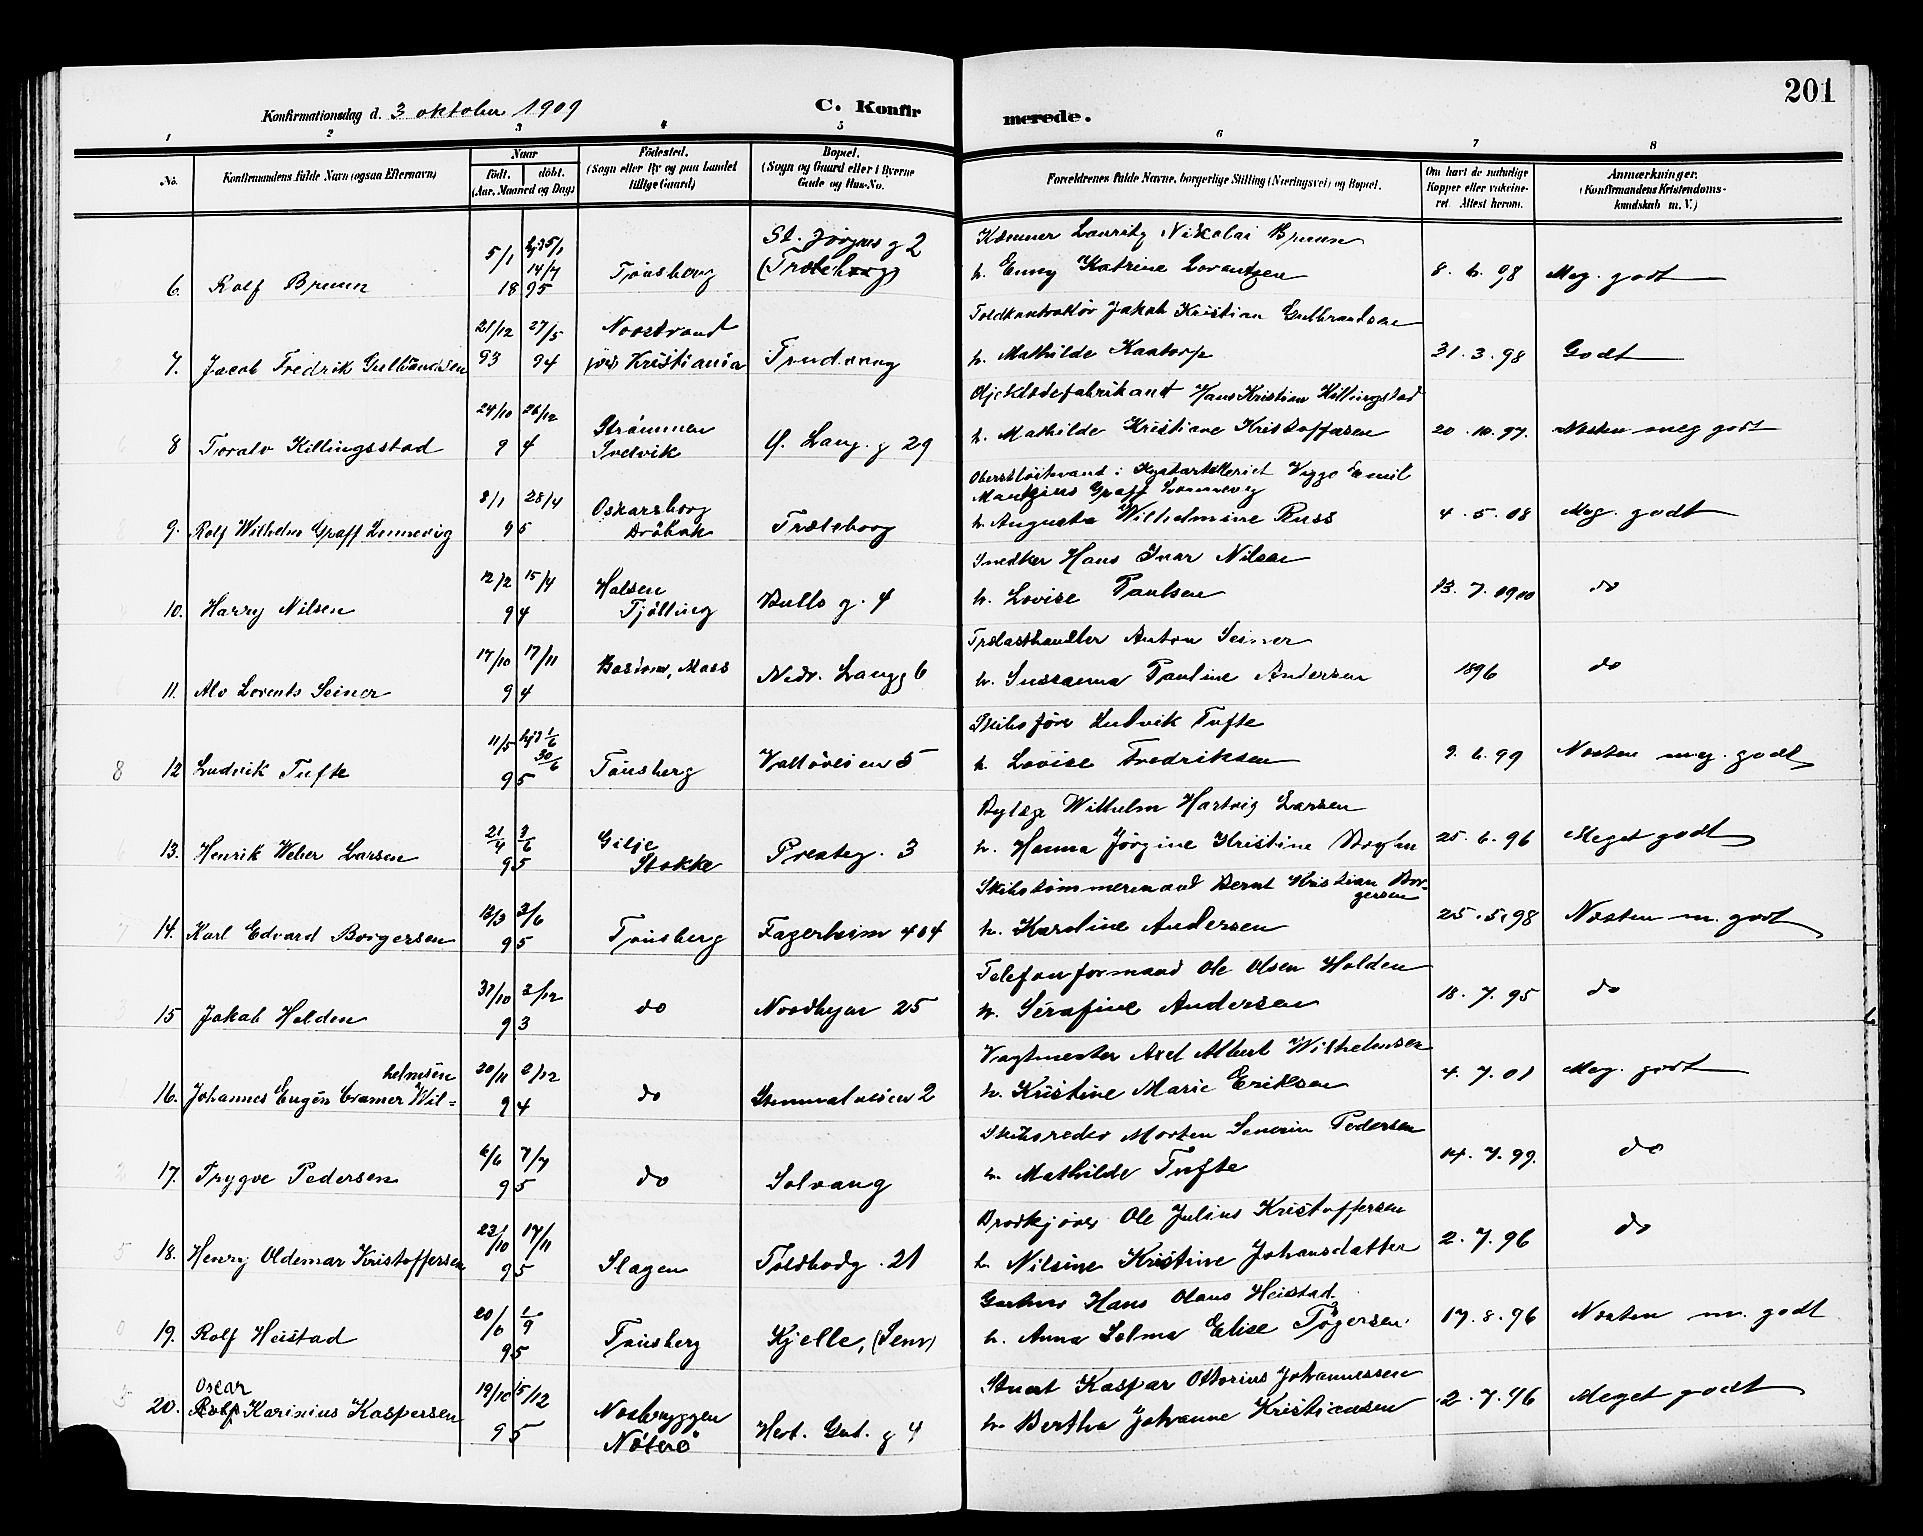 201
Konfirmationsdag d. 3 oktober 1909
C. Konfirmerede.
1 2 3 4 5 6 7 8
No.
Konfirmandens fulde Navn (ogsaa Efternavn)
Naar
født. døbt.
(Aar, Maaned og Dag)
Fødested.
(Sogn eller By og paa Landet
tillige Gaard)
Bopæl.
(Sogn og Gaard eller i Byerne
Gade og Hus-No.
Forældrenes fulde Navne, borgerlige Stilling (Næringsvei) og Bopæl.
Om havt de naturlige
Kopper eller vakcine-
ret. Attest herom.
Anmærkninger.
(Konfirmandens Kristendoms-
kundskab m. V.)
6. Rolf Bruun
5/1 hjd 5/1
14/7
1895
Tønsberg
St. Jørgens g 2
(Træleborg)
Kæmner Lauritz Nikolai Bruun
h. Enny Katrine Lorentzen
8. 6. 98
Meg. godt
7. Jacob Fredrik Gulbrandsen
21/12 27/5
93 94
Nordstrand
ved Kristiania
Trudvang
Toldkontrollør Jakob Kristian Gulbrandsen
h. Mathilde Kaatorp
31. 3. 98
Godt
8 Toralv Killingsstad
24/10 26/12
94
Strømmen
Svelvik
Ø. Lang. g 29
Oljeklædefabrikant Hans Kristian Killingstad
h. Mathilde Kristiane Kristoffersen
20. 10. 97.
Næsten meg godt
9. Rolf Wilhelm Graff Lennevig
8/1 28/4
95
Oskarsborg
Drøbak
Træleborg
Oberstløitnant i Kystartilleriet Viggo Emil
h. Augusta Wilhelmine Russ
4. 5. 08
Meg. godt
10. Harry Nilsen
12/2 15/4
94
Halsen
Tjølling
Bulls g. 4
Snedker Hans Ivar Nilsen
h. Lovise Paulsen
13. 7. 0900
do
11. Alv Lorents Seiner
17/10 17/11
94
Bastøen, Moss
Nedr. Langg 6
Trælasthandler Anton Seiner
h. Sussanna Pauline Andersen
1896
do
8
12 Ludvik Tufte
11/5 hjd 1/6
30/6
95
Tønsberg
Valløveien 5
Skibsfører Ludvik Tufte
h. Lovise Fredriksen
9. 6. 99
Næsten meg. godt
13. Henrik Weber Larsen
21/4 3/6
95
Gilje
Stokke
Presteg. 3
Bylæge Wilhelm Hartvig Larsen
h. Hanna Jørgine Kristine Bryhn
25. 6. 96
Meget godt
14. Karl Edvard Borgersen
13/3 3/6
95
Tønsberg
Fagerheim 404
Skibstømmermand Bernt Kristian Bor-
gersen
h. Karoline Andersen
25. 5. 98
Næsten m. godt
15 Jakob Holden
31/10 3/12
93
do
Nordbyen 25
Telefonformand Ole Olsen Holden
h. Serafine Andersen
18. 7. 95
do
helmsen
16. Johannes Eugén Cramer Wil-
20/11 2/12
94
do
Gunnalveien 2
Vagtmester Axel Albert Wilhelmsen
h. Kristine Marie Eriksen
4. 7. 01
Meg. godt
17. Trygve Pedersen
6/6 7/7
95
do
Solvang
Skibsreder Morten Severin Pedersen
h. Mathilde Tufte
14. 7. 99.
do
18. Henry Oldemar Kristoffersen
23/10 17/11
95
Slagen
Toldbodg. 21
Brødkjører Ole Julius Kristoffersen
h. Nilsine Kristine Johansdatter
2. 7. 96
do
19. Rolf Heistad
20/6 1/9
95
Tønsberg
Kjelle, (Sem)
Gartner Hans Olaus Heistad
h. Anna Selma Elise Tøgersen
17. 8. 96
Næsten m. godt
Oscar
20. Rolf Karinius Kaspersen
19/10 15/12
95
Nøtterø
Hert. Gut. g 4
Stuert Kaspar Ottorius Johannessen
h. Bertha Johanne Kristiansen
2. 7. 96
Meget godt